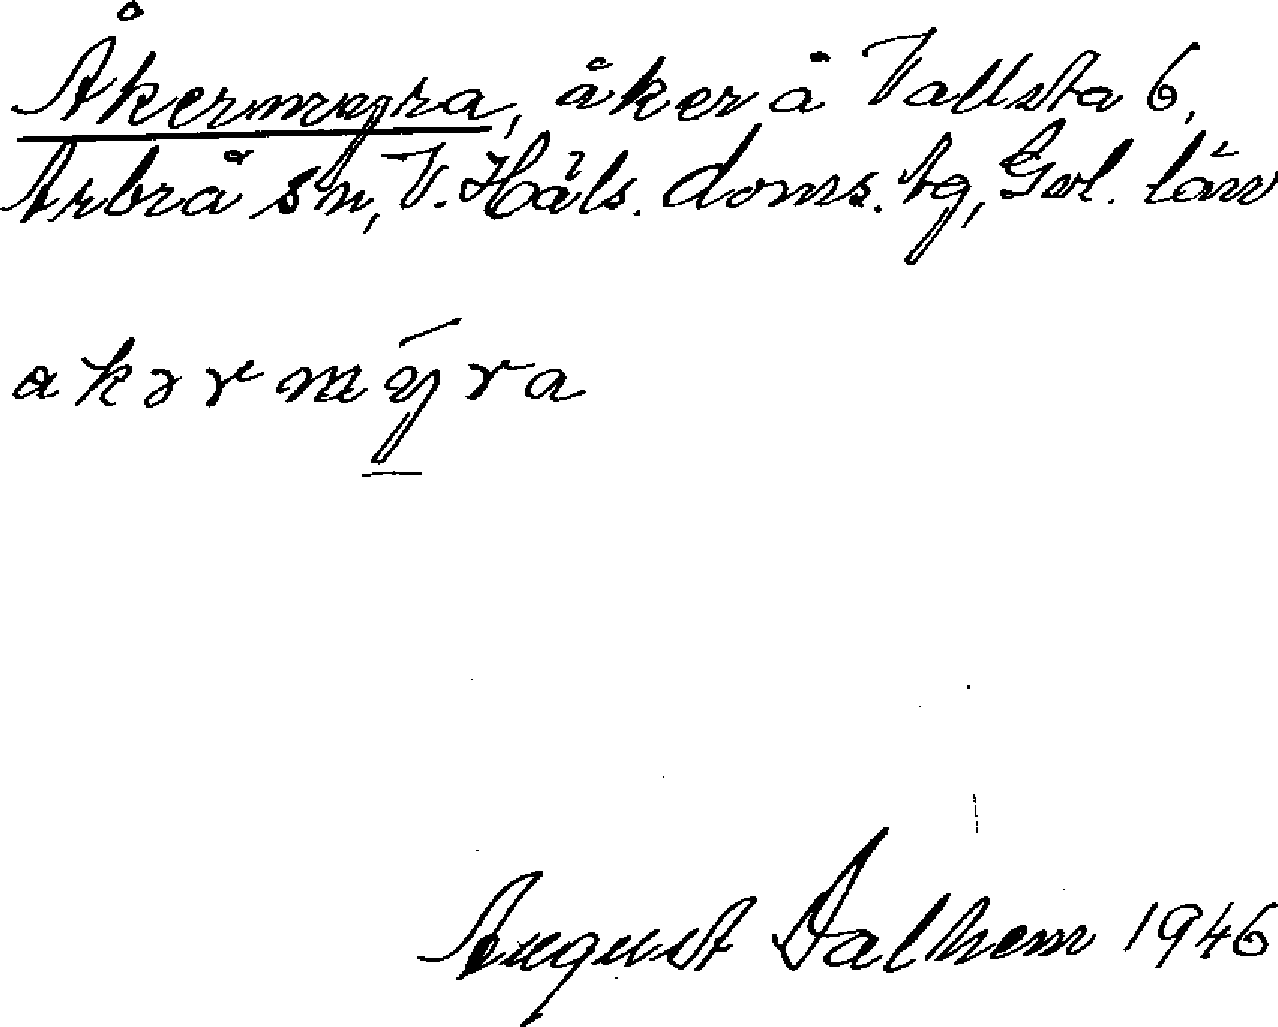 Åkermyra, åker å Vallsta 6,
Arbrå sn, V. Häls. doms. tg, Gvl. län
akərmýra
August Dalhem 1946